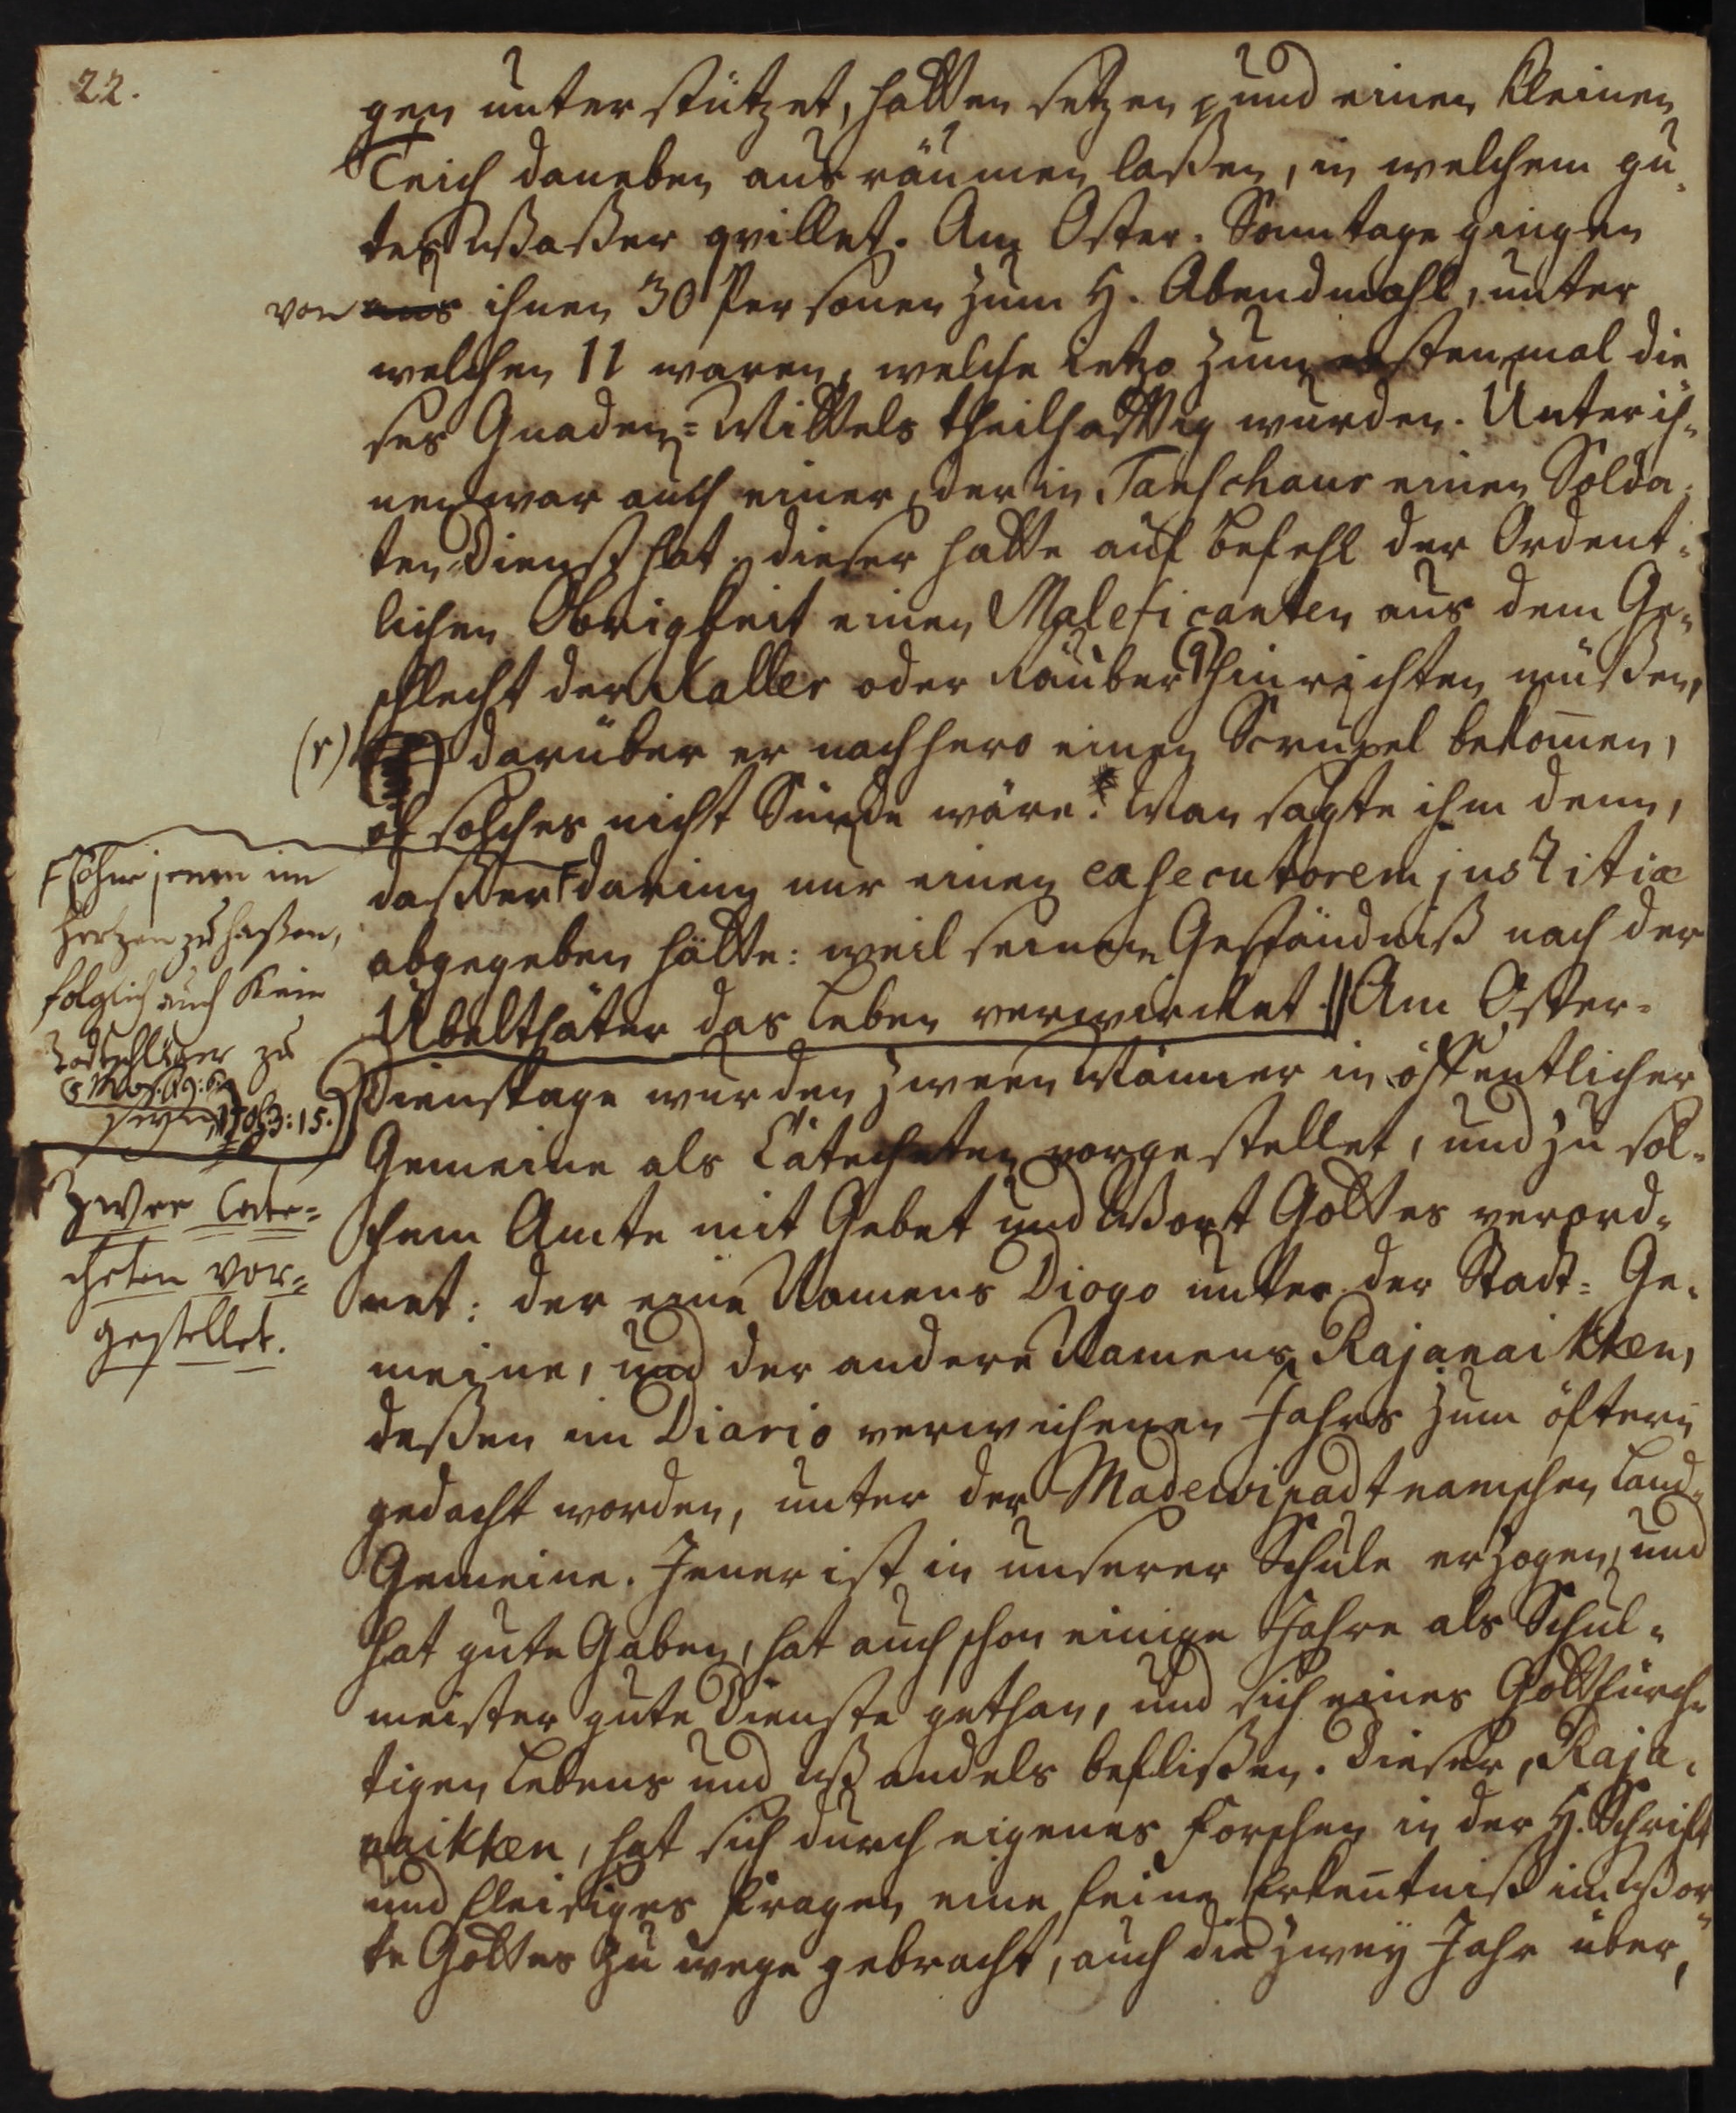 22.
gen unterstützet, hatten setzen, und einen kleinen
Teich daneben ausräumen laßen, in welchem gu-
tes Waßer qvillet. Am Oster-Sonntage gingen
von aus ihnen 30 Personen zum H. Abendmahl, unter
welchen 11 waren, welche ietzo zum erstenmal die
ses Gnaden-Mittels theilhafftig wurden. Unter ih-
nen war auch einer, der in Tanschaur einen Solda-
ten Dienst hat, dieser hatte auf Befehl der Ordent-
lichen Obrigkeit einen Maleficanten aus dem Ge-
schlecht der Kaller oder Räuber hinrichten müßen,
(r) darüber er nachhero einen Scrupel bekom̄en,
ob solches nicht Sünde wäre. Man sagte ihm denn,
daß er F darin nur einen exsecutorem justitiæ
abgegeben hätte: weil seinem Geständniß nach der
Übelthäter das Leben verwircket. || Am Oster-
Dienstage wurden zween Männer in öffentlicher
Gemeine als Catecheten vorgestellet, und zu sol-
chem Amte mit Gebet und Wort Gottes verord-
net: der eine Namens Diogo unter der Stadt-Ge-
meine, und der andere Namens Rajanaikken,
deßen im Diario verwichenen Jahrs zum öftern
gedacht worden, unter der Madewipadtnamschen Land-
Gemeine. Jener ist in unserer Schule erzogen, und
hat gute Gaben, hat auch schon einige Jahre als Schul-
meister gute Dienste gethan, und sich eines Gottfürch-
tigen Lebens und Wandels beflißen. Dieser, Raja-
naikken, hat sich durch eigenes Forschen in der H. Schrift
und fleißiges Fragen eine feine Erken̄tniß im Wor-
te Gottes zu wege gebracht, auch die zwey Jahr über,
F ohne jenen im
Hertzen zu haßen,
folglich auch kein
Todtschläger zu
(5 Mos. 19:6.
seyn, 1 Joh. 3:15.)
Zwee Cate-
cheten vor-
gestellet.